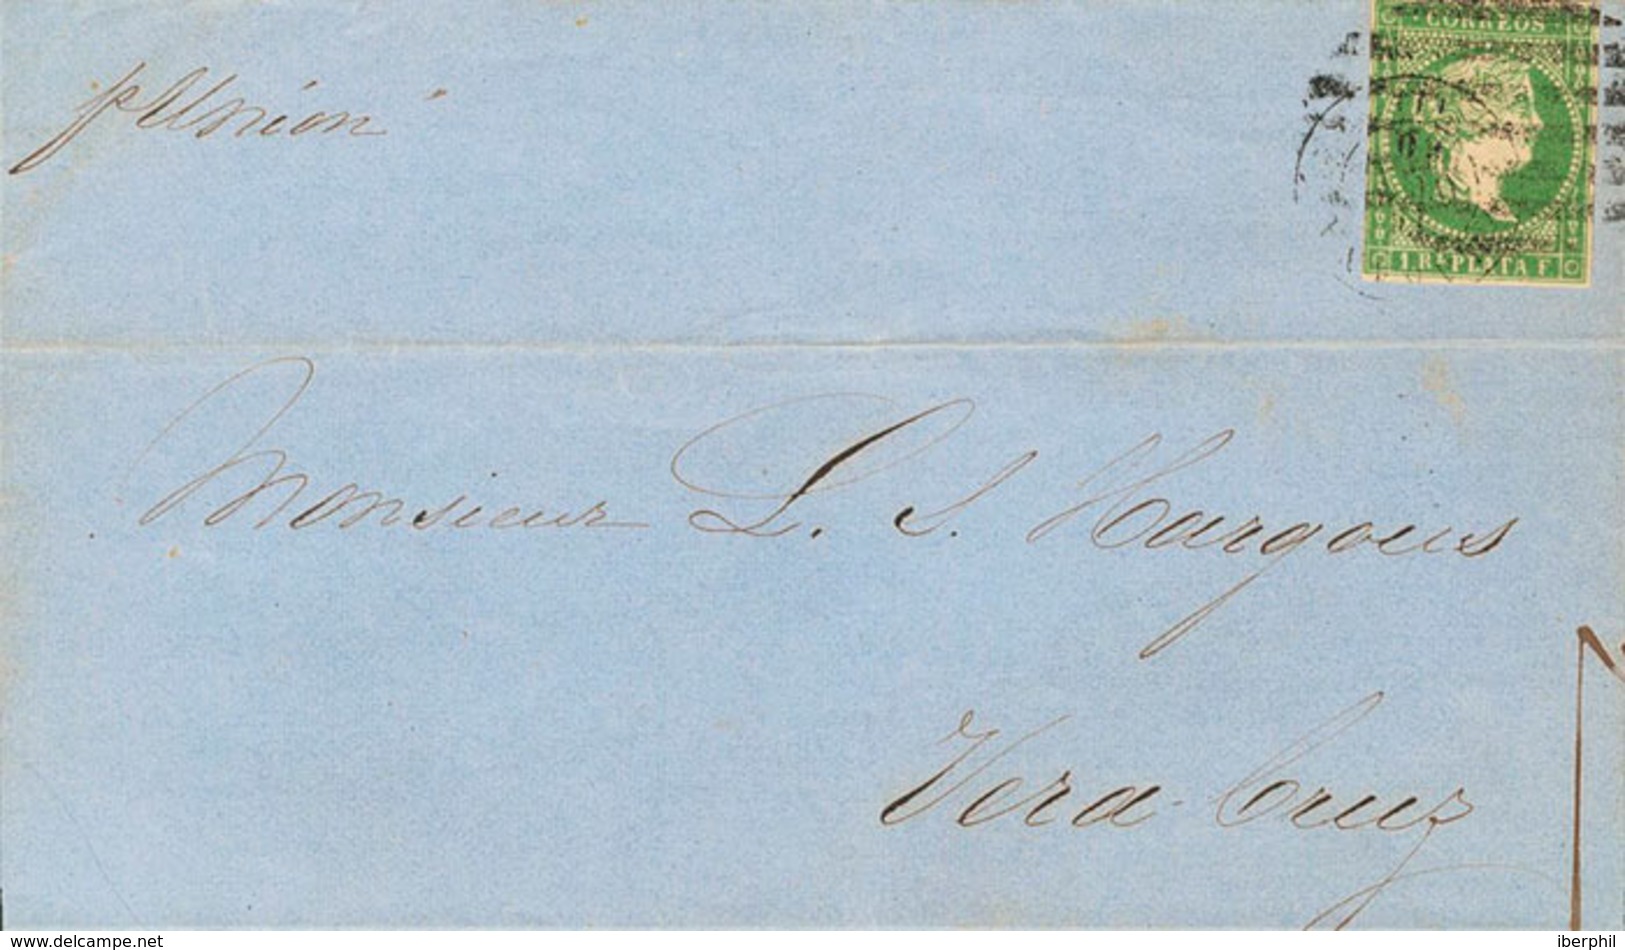 CORREOS
p Union
1 Rl. PLATA F.
Monsieur L. S. Hargous
Vera Cruz
www.delcampe.net
iberphil